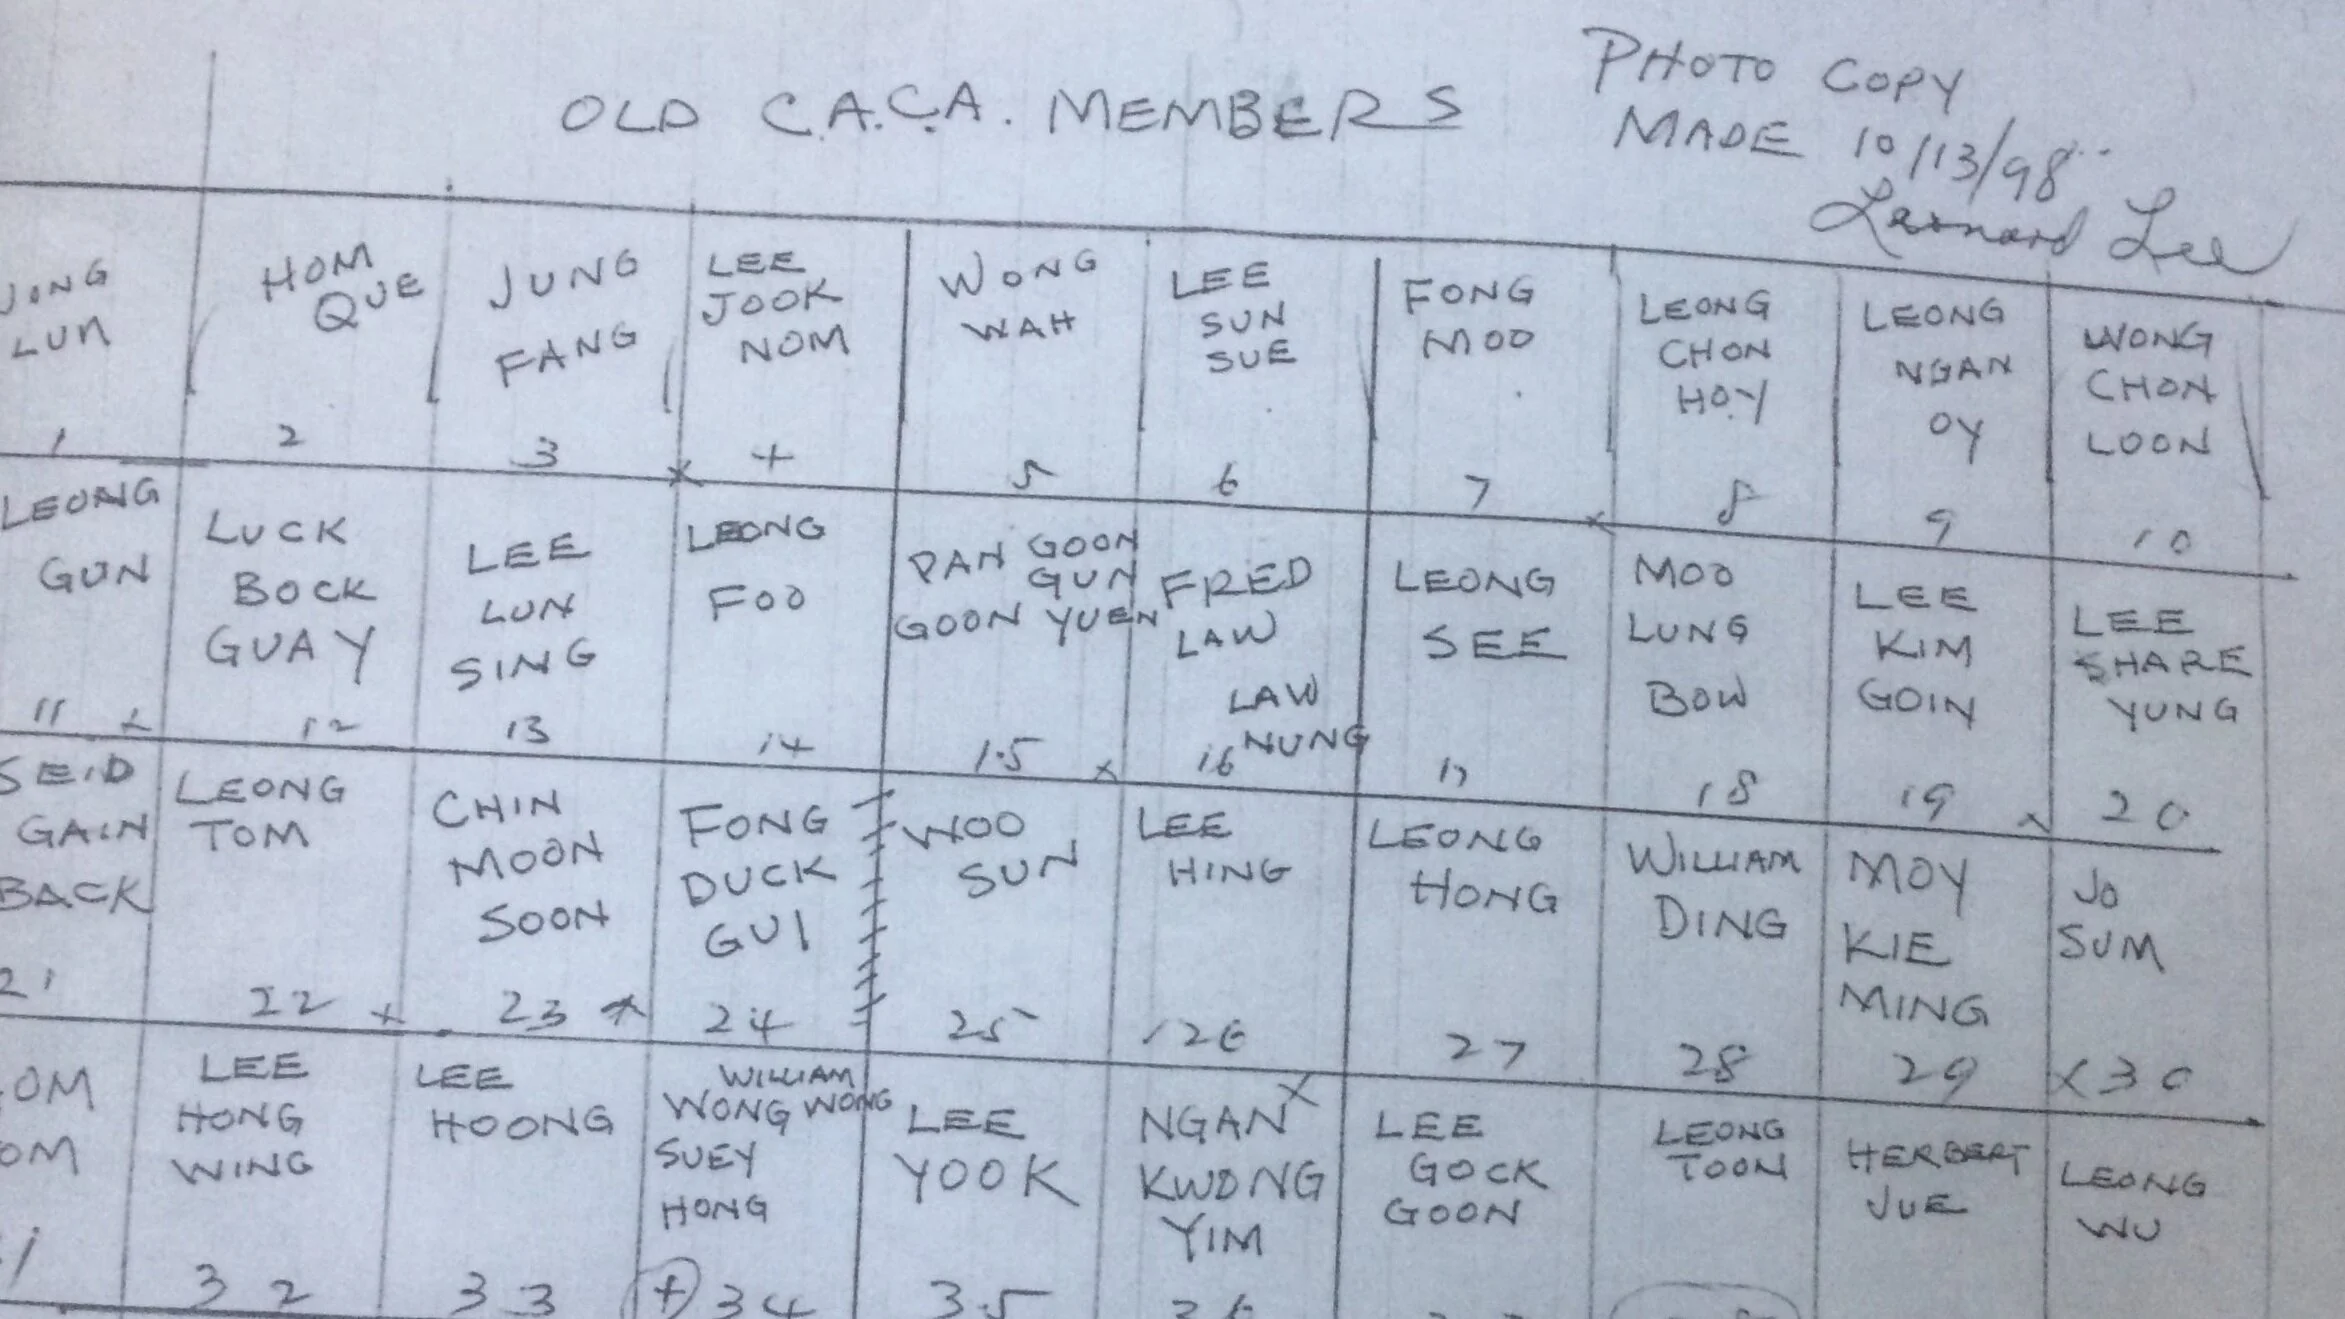 OLD C.A.C.A. MEMBERS
PHOTO COPY
MADE 10/13/98
Leonard Lee
JONG
LUN
1
HOM
QUE
2
JUNG
FANG
3
LEE
JOOK
NOM
4
WONG
WAH
5
LEE
SUN
SUE
6
FONG
MOO
7
LEONG
CHON
HOY
8
LEONG
NGAN
OY
9
WONG
CHON
LOON
10
LEONG
GUN
11
LUCK
BOCK
GUAY
12
LEE
LUN
SING
13
LEONG
FOO
14
PAN GOON
GUN
GOON YUEN
15
FRED
LAW
LAW
NUNG
16
LEONG
SEE
17
MOO
LUNG
BOW
18
LEE
KIM
GOIN
19
LEE
SHARE
YUNG
20
SEID
GAIN
BACK
21
LEONG
TOM
22
CHIN
MOON
SOON
23
FONG
DUCK
GUI
24
WOO
SUN
25
LEE
HING
26
LEONG
HONG
27
WILLIAM
DING
28
MOY
KIE
MING
29
JO
SUM
30
LEE
HONG
WING
32
LEE
HOONG
33
WILLIAM
WONG WONG
SUEY
HONG
34
LEE
YOOK
35
NGAN
KWONG
YIM
36
LEE
GOCK
GOON
LEONG
TOON
HERBERT
JUE
LEONG
WU